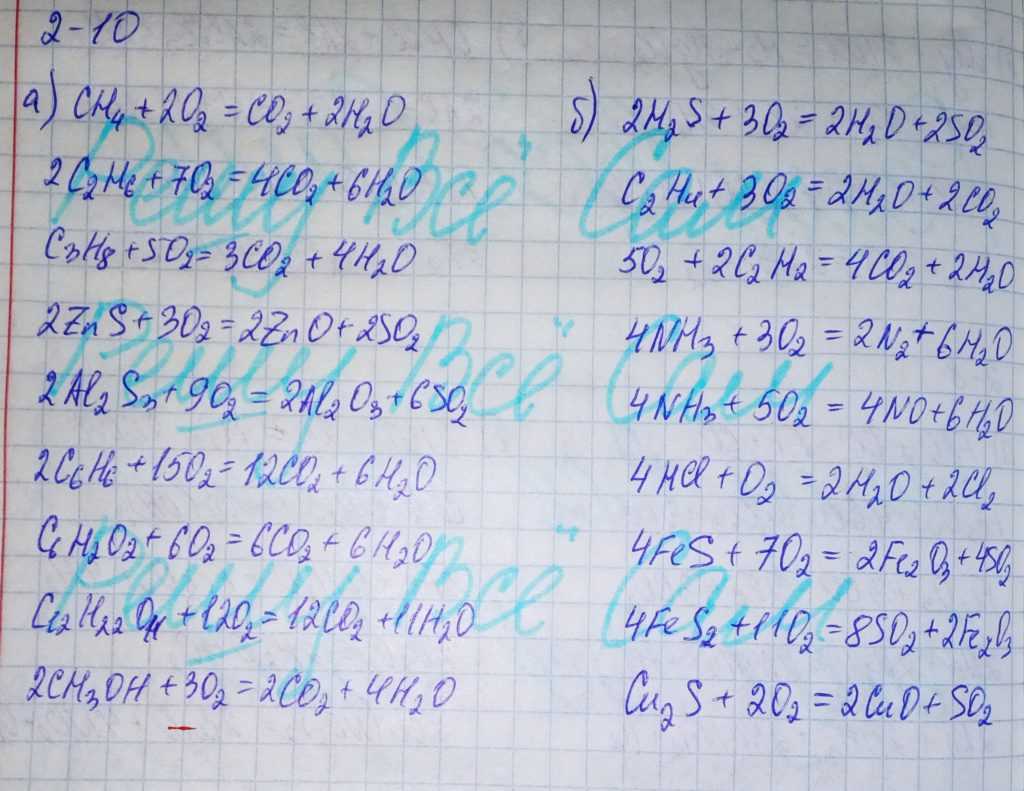 2-10
а) CH₄ + 2O₂ = CO₂ + 2H₂O
2C₂H₆ + 7O₂ = 4CO₂ + 6H₂O
C₃H₈ + 5O₂ = 3CO₂ + 4H₂O
2ZnS + 3O₂ = 2ZnO + 2SO₂
2Al₂S₃ + 9O₂ = 2Al₂O₃ + 6SO₂
2C₆H₆ + 15O₂ = 12CO₂ + 6H₂O
C₆H₁₂O₂ + 6O₂ = 6CO₂ + 6H₂O
C₁₂H₂₂O₁₁ + 12O₂ = 12CO₂ + 11H₂O
2CH₃OH + 3O₂ = 2CO₂ + 4H₂O
б) 2H₂S + 3O₂ = 2H₂O + 2SO₂
C₂H₄ + 3O₂ = 2H₂O + 2CO₂
5O₂ + 2C₂H₂ = 4CO₂ + 2H₂O
4NH₃ + 3O₂ = 2N₂ + 6H₂O
4NH₃ + 5O₂ = 4NO + 6H₂O
4HCl + O₂ = 2H₂O + 2Cl₂
4FeS + 7O₂ = 2Fe₂O₃ + 4SO₂
4FeS₂ + 11O₂ = 8SO₂ + 2Fe₂O₃
Cu₂S + 2O₂ = 2CuO + SO₂
Решу Всё Сам
Решу Всё Сам
Решу Всё Сам